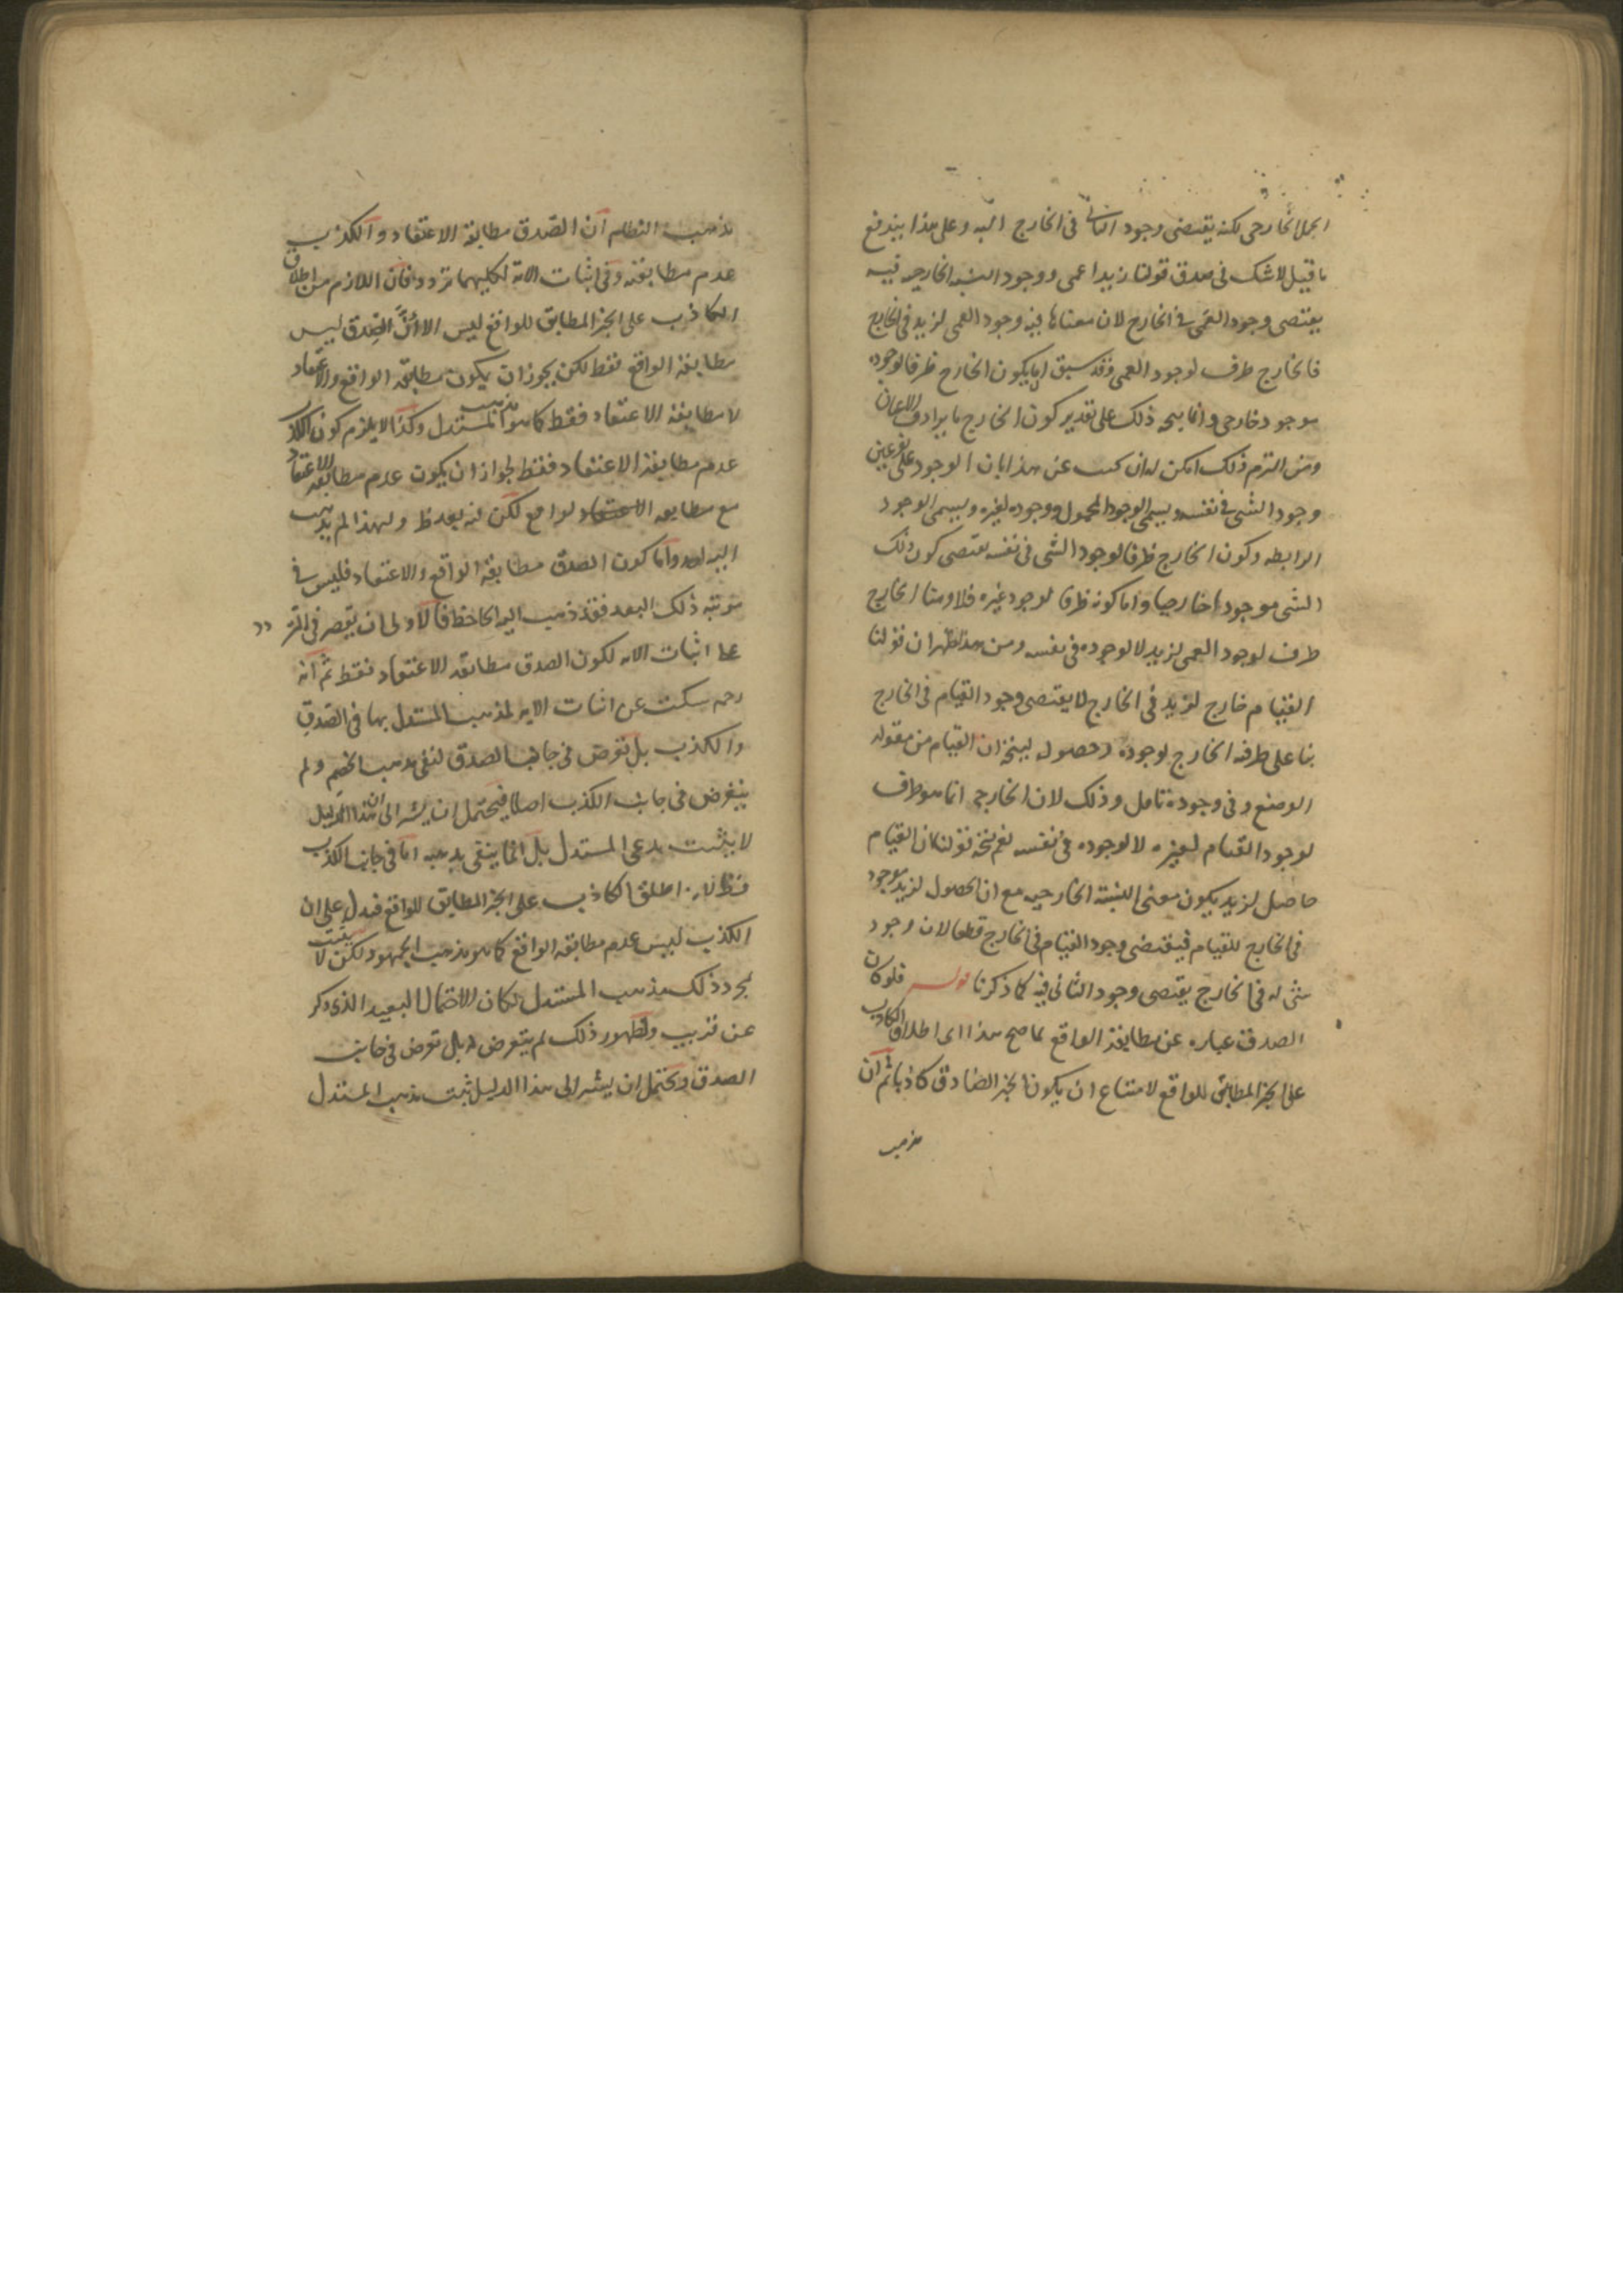 الخارجي لكنه يقتضي وجود الثاني في الخارج البته وعلى هذا يندفع
ما قيل لا شك في صدق قولنا زيد اعمى ووجود النسبه الخارجيه فيه
يقتضي وجود العمى في الخارج لان معناها فيه وجود العمى لزيد في الخارج
فالخارج ظرف لوجود العمى وقد سبق ان ما يكون الخارج ظرفا لوجوده
موجود خارجي وانما يتجه ذلك على تقدير كون الخارج ما يرادف الاعيان
ومن التزم ذلك امكن له ان عن هذا بان الوجود على نوعين
وجود الشي في نفسه ويسمى الوجود المحمول ووجوده لغيره ويسمى الوجود
الرابطه وكون الخارج ظرفا لوجود الشي في نفسه يقتضي كون ذلك
الشي موجودا خارجيا واما كونه ظرفا لوجود غيره فلا وهنا الخارج
ظرف لوجود العمى لزيد لا لوجوده في نفسه ومن هذا ظهر ان قولنا
القيام خارج لزيد في الخارج لا يقتضي وجود القيام في الخارج
بنا على ظرفيه الخارج لوجوده وحصوله ليتجه ان القيام من مقوله
الوضع وفي وجوده تامل وذلك لان الخارج انما هو ظرف
لوجود القيام لغيره لا لوجوده في نفسه نعم يتجه قولنا ان القيام
حاصل لزيد يكون معنى النسبة الخارجيه مع ان الحصول لزيد موجود
في الخارج للقيام فيقتضي وجود القيام في الخارج قطعا لان وجود
شي له في الخارج يقتضي وجود الثاني فيه كما ذكرنا قوله فلو كان
الصدق عباره عن مطابقة الواقع لما صح هذا اي اطلاق الكاذب
على الخبر المطابق للواقع لامتناع ان يكون الخبر الصادق كاذبا ثم ان
مذهب
مذهب النظام ان الصدق مطابقة الاعتقاد والكذب
عدم مطابقته وفي اثبات الاية لكليهما تردد فان اللازم من اطلاق
الكاذب على الخبر المطابق للواقع ليس الا ان الصدق ليس
مطابقة الواقع فقط لكن يجوز ان يكون مطابقة الواقع والاعتقاد
لا مطابقة الاعتقاد فقط كما هو مذهب المستدل وكذا لا يلزم كون الكذب
عدم مطابقة الاعتقاد فقط لجواز ان يكون عدم مطابقة الاعتقاد
مع مطابقه الواقع لكن فيه بعد ولهذا لم يذهب
اليه احد واما كون الصدق مطابقة الواقع والاعتقاد فليس في
مرتبة ذلك البعد فقد ذهب اليه الجاحظ فالاولى ان يقصر في التردد
على اثبات الاية لكون الصدق مطابقه الاعتقاد فقط ثم انه
رحمه سكت عن اثبات الاية لمذهب المستدل بها في الصدق
والكذب بل تعرض في جانب الصدق لنفي مذهب الخصم ولم
يتعرض في جانب الكذب اصلا فيحتمل ان يشير الى ان هذا الدليل
لا يثبت مدعى المستدل بل انما ينفي اما في جانب الكذب
فظ لانه اطلق الكاذب على الخبر المطابق للواقع فيدل على ان
الكذب ليس عدم مطابقة الواقع كما هو مذهب الجمهور لكن لا يثبت
بمجرد ذلك مذهب المستدل لمكان الاحتمال البعيد الذي ذكر
عن قريب ولظهور ذلك لم يتعرض له بل تعرض في جانب
الصدق ويحتمل ان يشير الى هذا الدليل يثبت مذهب المستدل